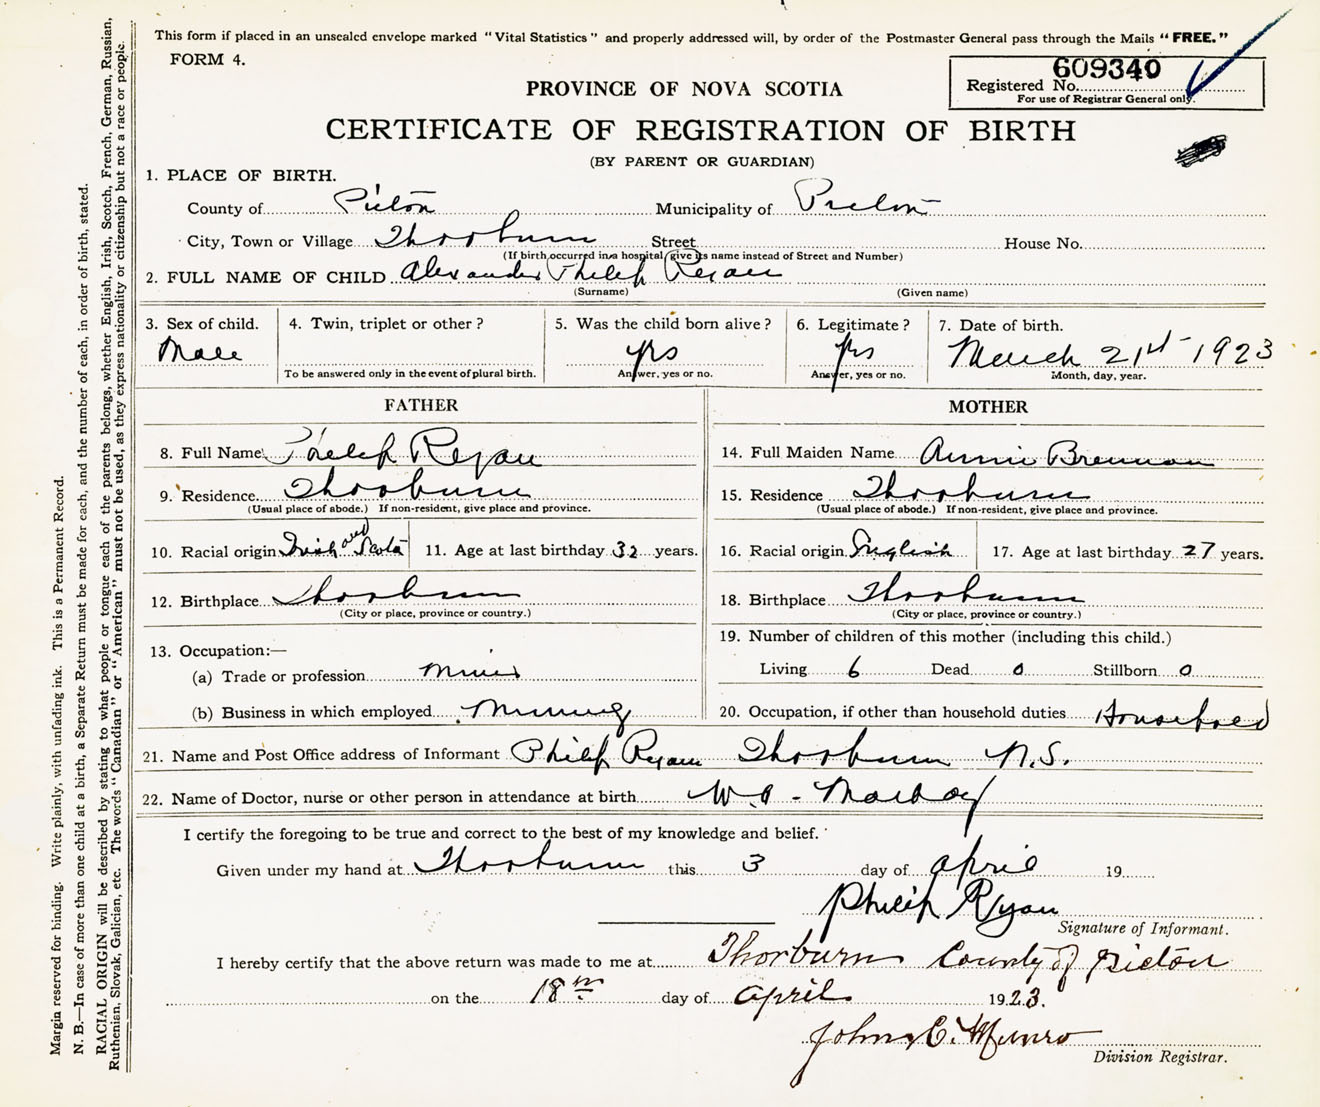 This form if placed in an unsealed envelope marked "Vital Statistics" and properly addressed will, by order of the Postmaster General pass through the Mails "FREE."
FORM 4.
609340
Registered No.
For use of Registrar General only.
PROVINCE OF NOVA SCOTIA
CERTIFICATE OF REGISTRATION OF BIRTH
(BY PARENT OR GUARDIAN)
1. PLACE OF BIRTH.
County of Pictou Municipality of Pictou
City, Town or Village Thorburn Street House No.
(If birth occurred in a hospital give its name instead of Street and Number)
2. FULL NAME OF CHILD Alexander Philip Ryan
(Surname) (Given name)
3. Sex of child. 4. Twin, triplet or other? 5. Was the child born alive? 6. Legitimate? 7. Date of birth.
Male yes yes March 21st 1923
To be answered only in the event of plural birth. Answer, yes or no. Answer, yes or no. Month, day, year.
FATHER MOTHER
8. Full Name Philip Ryan 14. Full Maiden Name Annie Brennan
9. Residence Thorburn 15. Residence Thorburn
(Usual place of abode.) If non-resident, give place and province. (Usual place of abode.) If non-resident, give place and province.
10. Racial origin Irish and Scotch 11. Age at last birthday 32 years. 16. Racial origin English 17. Age at last birthday 27 years.
12. Birthplace Thorburn 18. Birthplace Thorburn
(City or place, province or country.) (City or place, province or country.)
13. Occupation:— 19. Number of children of this mother (including this child.)
(a) Trade or profession Miner Living 6 Dead 0 Stillborn 0
(b) Business in which employed Mining 20. Occupation, if other than household duties Household
21. Name and Post Office address of Informant Philip Ryan Thorburn N.S.
22. Name of Doctor, nurse or other person in attendance at birth W. A. - MacKay
I certify the foregoing to be true and correct to the best of my knowledge and belief.
Given under my hand at Thorburn this 3 day of April 19
Philip Ryan
Signature of Informant.
I hereby certify that the above return was made to me at Thorburn County of Pictou
on the 18th day of April 1923.
John C. Munro
Division Registrar.
Margin reserved for binding. Write plainly, with unfading ink. This is a Permanent Record.
N. B.—In case of more than one child at a birth, a Separate Return must be made for each, and the number of each, in order of birth, stated.
RACIAL ORIGIN will be described by stating to what people or tongue each of the parents belongs, whether English, Irish, Scotch, French, German, Russian,
Ruthenian, Slovak, Galician, etc. The words "Canadian" or "American" must not be used, as they express nationality or citizenship but not a race or people.